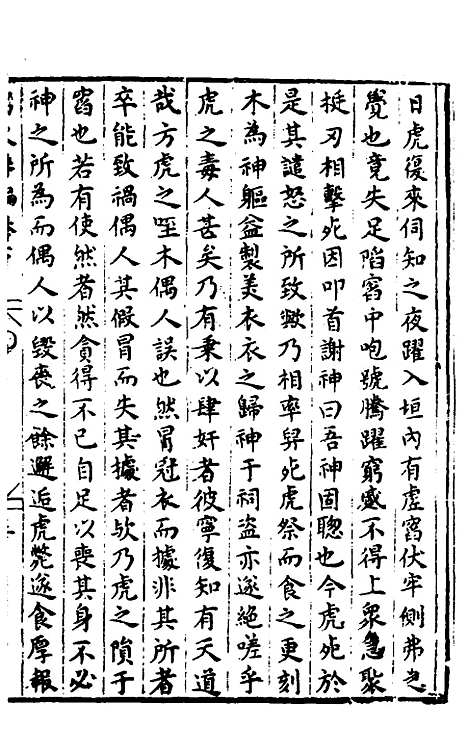 日虎復來伺知之夜躍入垣內有虛窞伏牢側弗之
覺也竟失足陷窞中咆號騰躍窮蹙不得上衆急聚
挺刃相擊死因叩首謝神曰吾神固聰也今虎死於
是其譴怒之所致歟乃相率舁死虎祭而食之更刻
木為神軀益製美衣衣之歸神于祠盜亦遂絕嗟乎
虎之毒人甚矣乃有乘以肆奸者彼寧復知有天道
哉方虎之咥木偶人誤也然冒冠衣而據非其所者
卒能致禍偶人其假冒而失其據者歟乃虎之隕于
窞也若有使然者然貪得不已自足以喪其身不必
神之所為而偶人以毀喪之餘邂逅虎斃遂食厚報